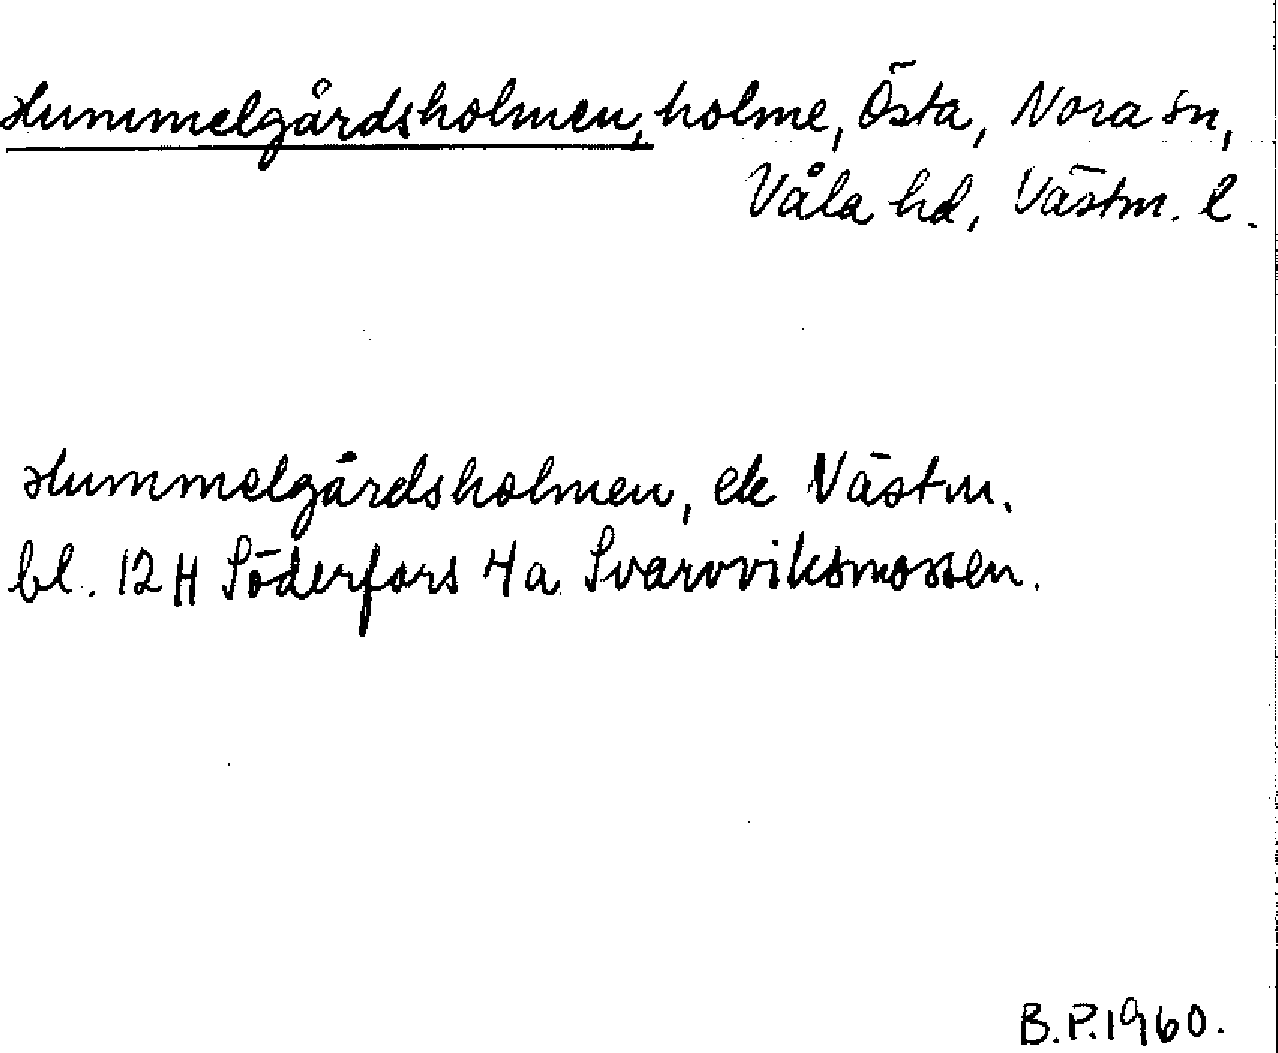 Hummelgårdsholmen, holme, Östa, Nora sn,
Våla hd, Västm. l.
Hummelgårdsholmen, ek Västm.
bl. 12 H Söderfors 4a Svarvviksmossen.
B.P. 1960.